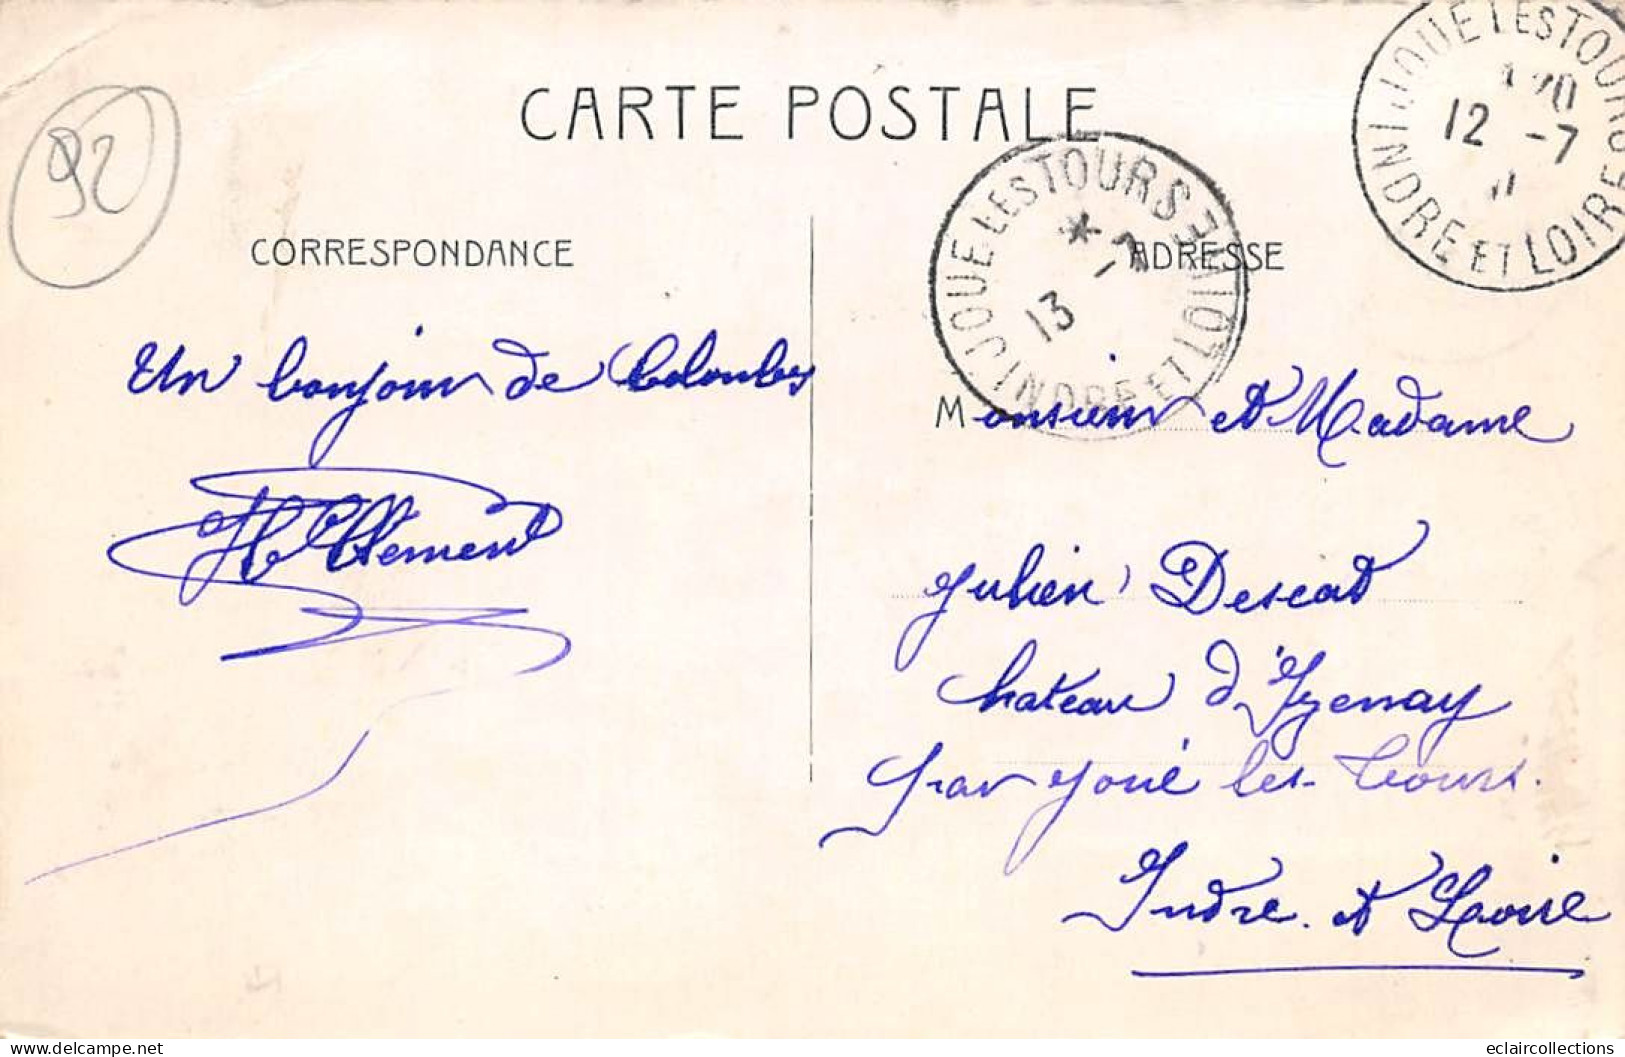 CARTE POSTALE
92
CORRESPONDANCE
ADRESSE
JOUE LES TOURS
INDRE ET LOIRE
12 -7
11
JOUE LES TOURS
* -7
13
INDRE ET LOIRE
Un bonjour de Colombes
H Clement
Monsieur et Madame
Julien Descat
Chateau d'Izernay
par Joué les Tours.
Indre et Loire
www.delcampe.net
eclaircollections